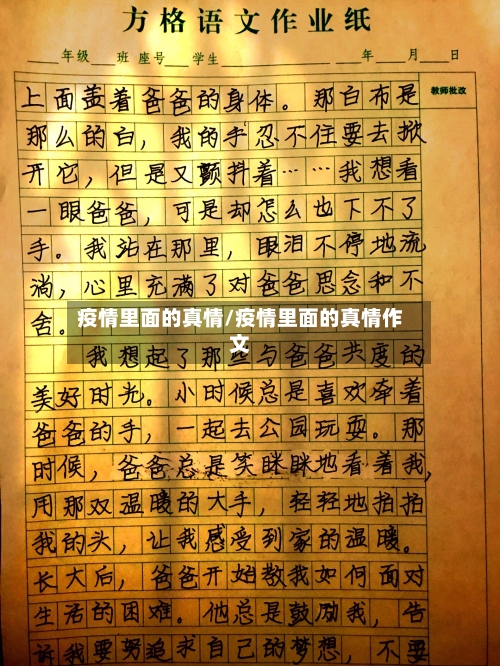 方格语文作业纸
年级 班 座号 学生 年 月 日
教师批改
上面盖着爸爸的身体。那白布是
那么的白，我的手忍不住要去掀
开它，但是又颤抖着……我想看
一眼爸爸，可是却怎么也下不了
手。我站在那里，眼泪不停地流
淌，心里充满了对爸爸思念和不
舍。
疫情里面的真情/疫情里面的真情作
文
我想起了那些与爸爸共度的
美好时光。小时候总是喜欢牵着
爸爸的手，一起去公园玩耍。那
时候，爸爸总是笑眯眯地看着我，
用那双温暖的大手，轻轻地拍拍
我的头，让我感受到家的温暖。
长大后，爸爸开始教我如何面对
生活的困难。他总是鼓励我，告
诉我要努追求自己的梦想，不要